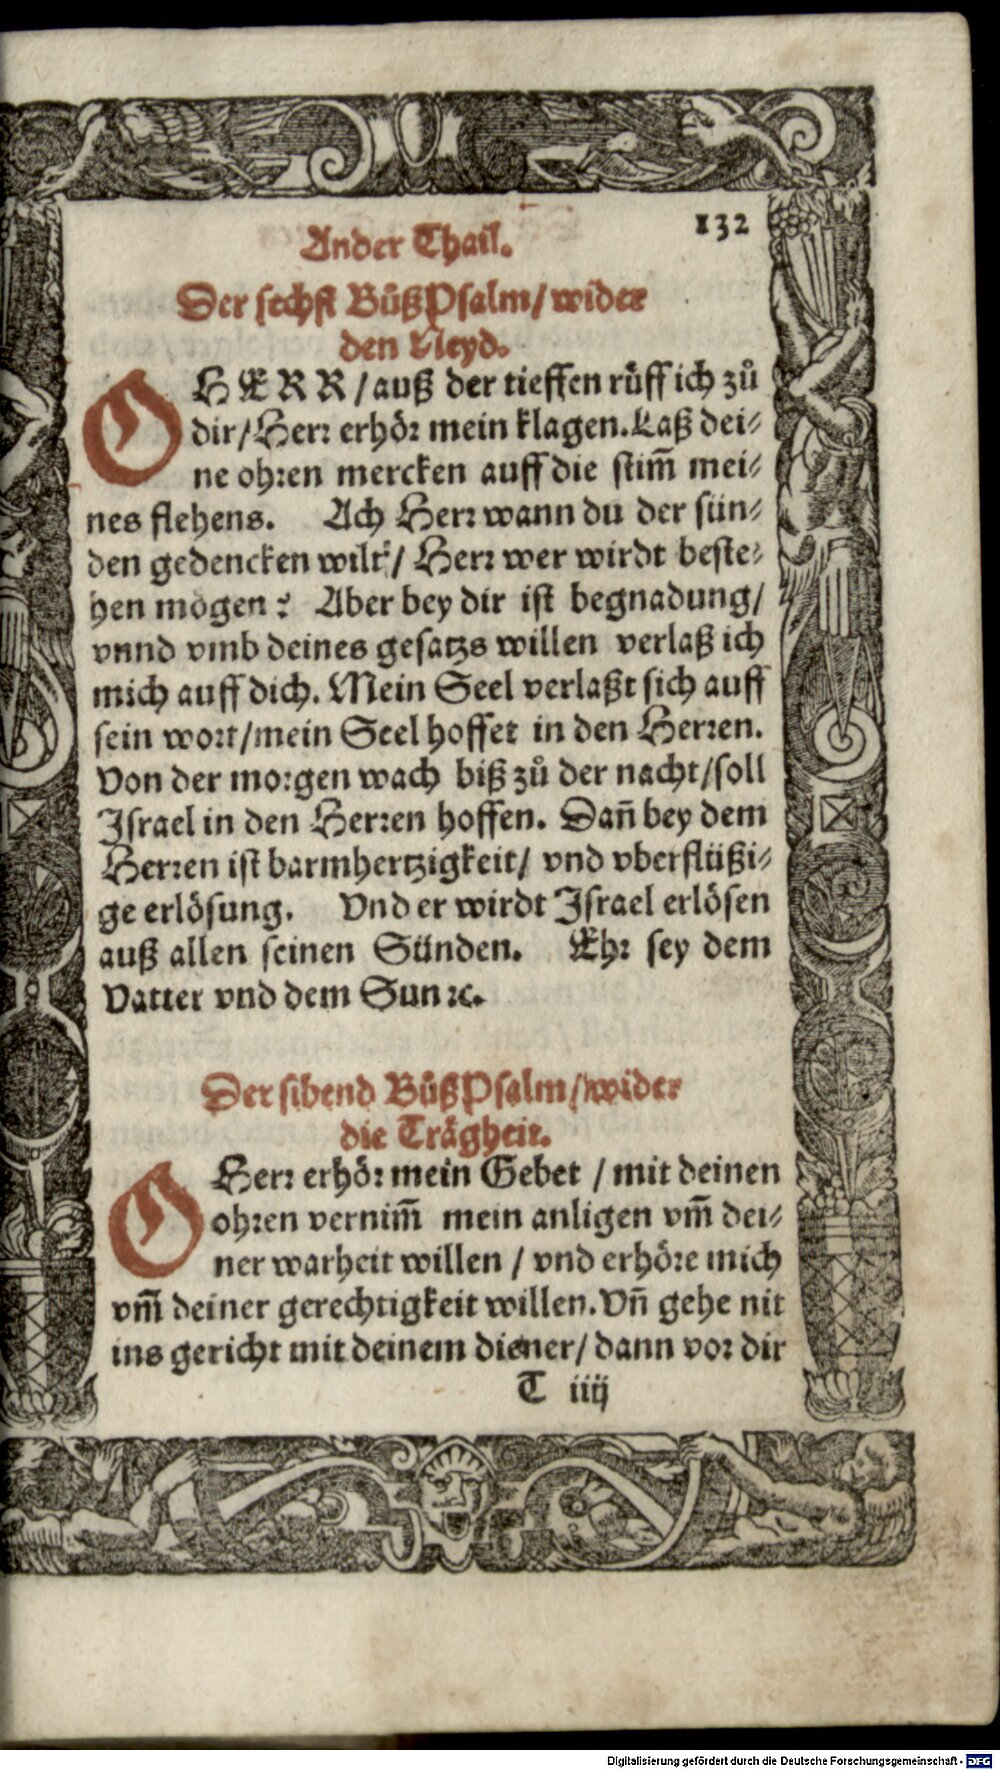 132
Ander Thail.
Der sechst BůßPsalm/ wider
den Neyd.
O HERR/ auß der tieffen rüff ich zů
dir/ Herr erhör mein klagen. Laß dei⸗
ne ohren mercken auff die stim̃ mei⸗
nes flehens. Ach Herr wann du der sün⸗
den gedencken wilt/ Herr wer wirdt beste⸗
hen mögen? Aber bey dir ist begnadung/
vnnd vmb deines gesatzs willen verlaß ich
mich auff dich. Mein Seel verlaßt sich auff
sein wort/ mein Seel hoffet in den Herren.
Von der morgen wach biß zů der nacht/ soll
Israel in den Herren hoffen. Dañ bey dem
Herren ist barmhertzigkeit/ vnd vberflüßi⸗
ge erlösung. Vnd er wirdt Israel erlösen
auß allen seinen Sünden. Ehr sey dem
Vatter vnd dem Sun ꝛc.
Der sibend BůßPsalm/ wider
die Trägheit.
O Herr erhör mein Gebet / mit deinen
ohren vernim̃ mein anligen vm̃ dei⸗
ner warheit willen / vnd erhöre mich
vm̃ deiner gerechtigkeit willen. Vñ gehe nit
ins gericht mit deinem diener/ dann vor dir
T iiij
Digitalisierung gefördert durch die Deutsche Forschungsgemeinschaft - DFG